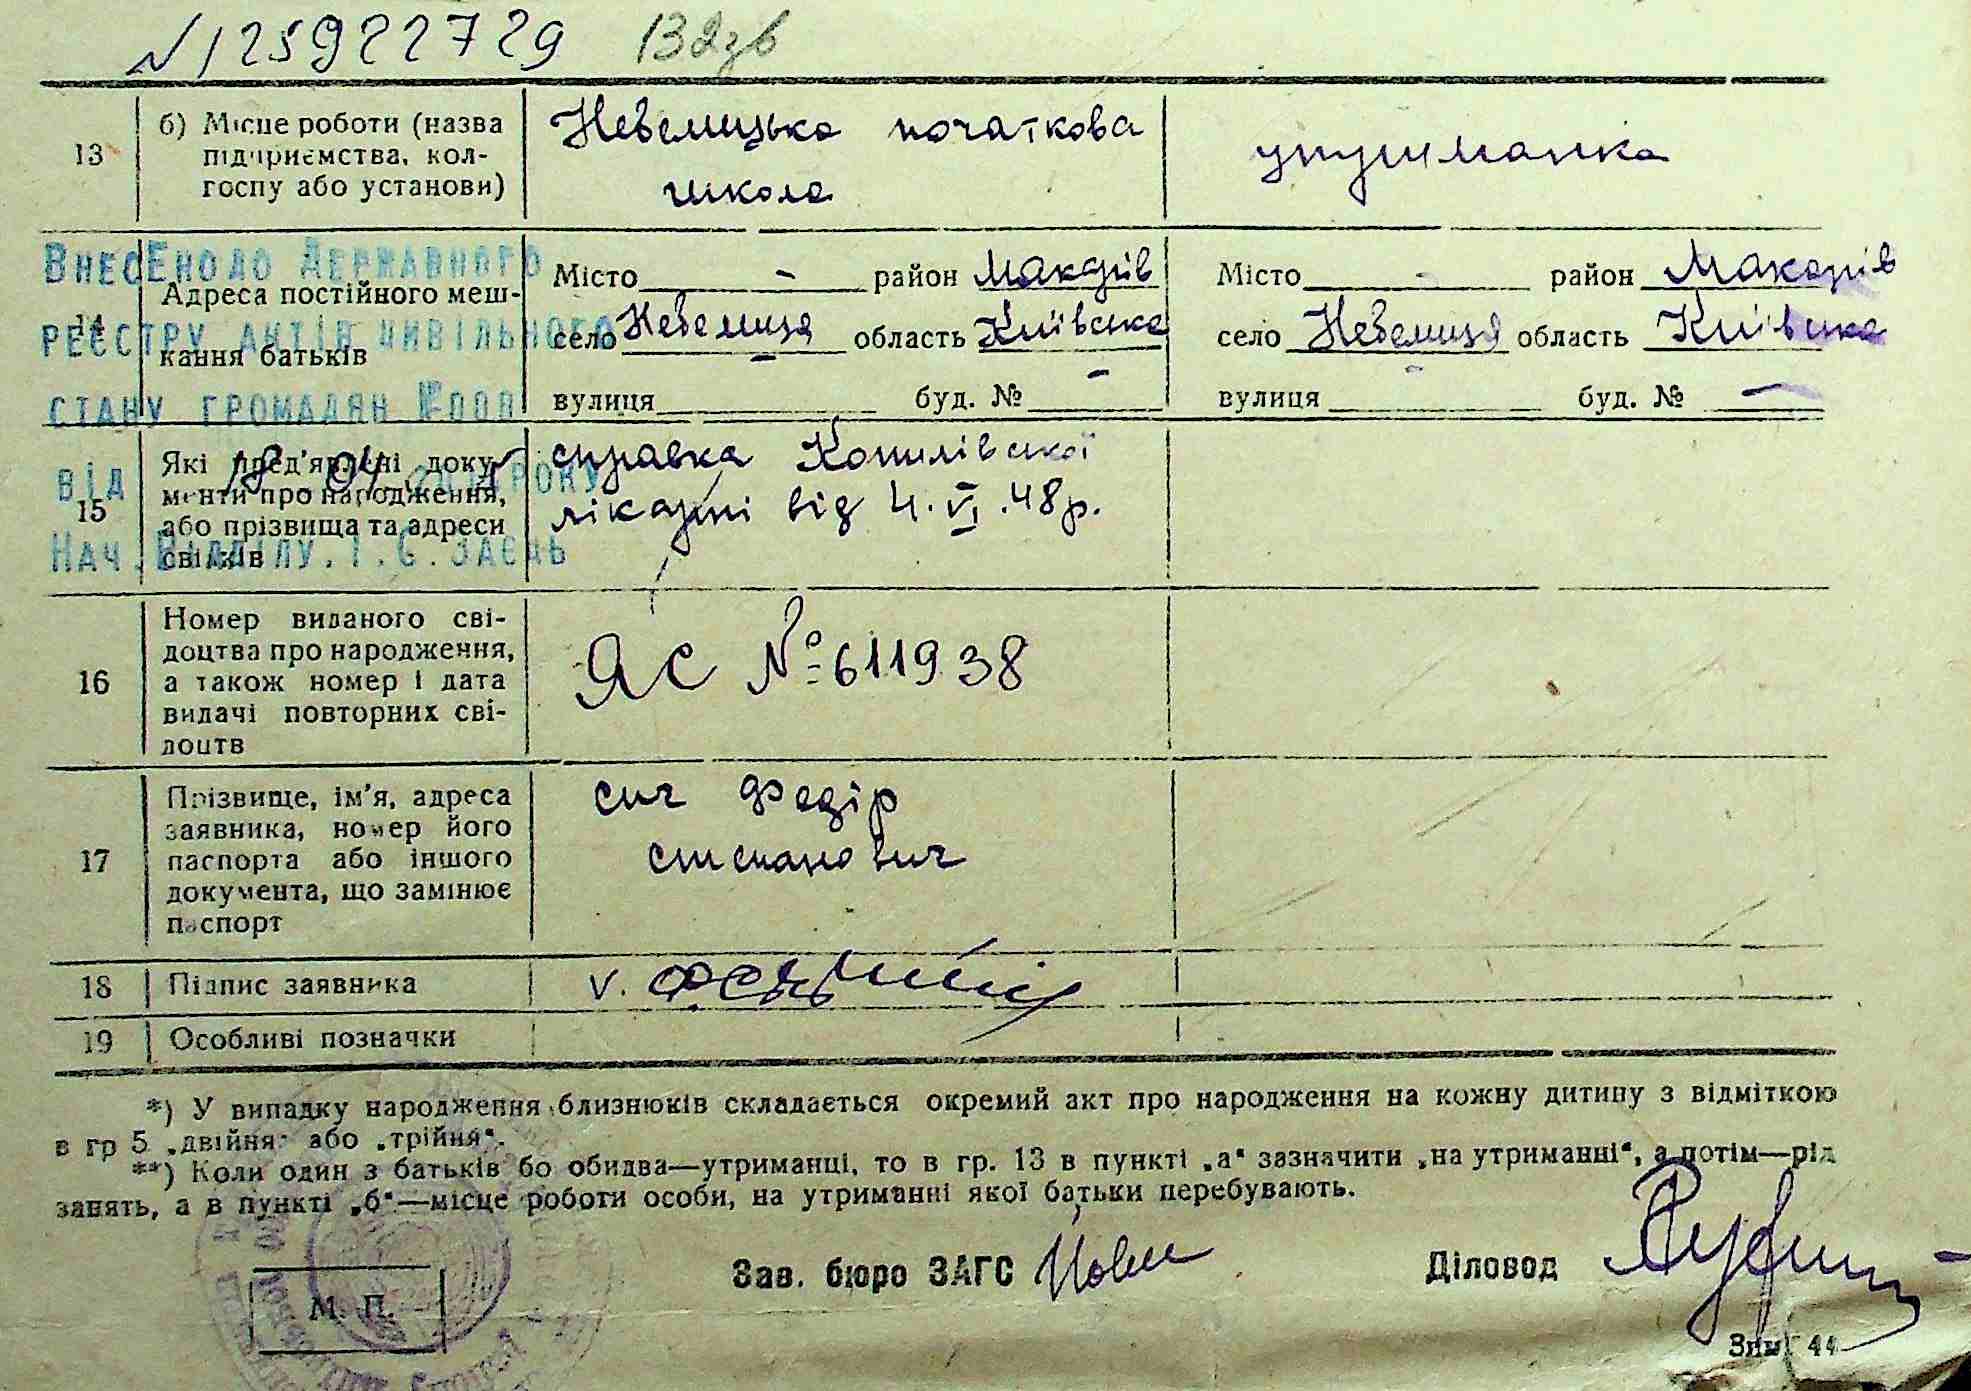 N 125922729 132зв
13 б) Місце роботи (назва підприємства, колгоспу або установи)
Небелицька початкова
школа
утриманка
Внесено до Державного
реєстру актів цивільного
стану громадян №
від 18 04 року
Нач. Відділу. І. С. Заєць
14 Адреса постійного мешкання батьків
Місто - район Макарів
село Небелиця область Київська
вулиця буд. № -
Місто - район Макарів
село Небелиця область Київська
вулиця буд. № -
15 Які пред'явлені документи про народження, або прізвища та адреси свідків
справка Копилівської
лікарні від 4.VI.48р.
16 Номер виданого свідоцтва про народження, а також номер і дата видачі повторних свідоцтв
ЯС № 611938
17 Прізвище, ім'я, адреса заявника, номер його паспорта або іншого документа, що замінює паспорт
Сич Федір
Степанович
18 Підпис заявника
v.
19 Особливі позначки
*) У випадку народження близнюків складається окремий акт про народження на кожну дитину з відміткою
в гр 5 „двійня" або „трійня".
**) Коли один з батьків бо обидва—утриманці, то в гр. 13 в пункті „а" зазначити „на утриманні", а потім—рід
занять, а в пункті „б"—місце роботи особи, на утриманні якої батьки перебувають.
Зав. бюро ЗАГС
Діловод
М. П.
44